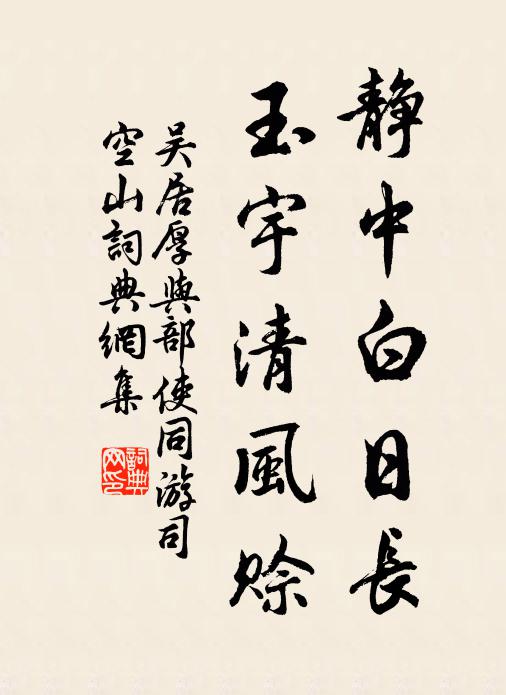 静中白日長
玉宇清風賒
吴居厚與部使同游司
空山詞典網集
詞典網印